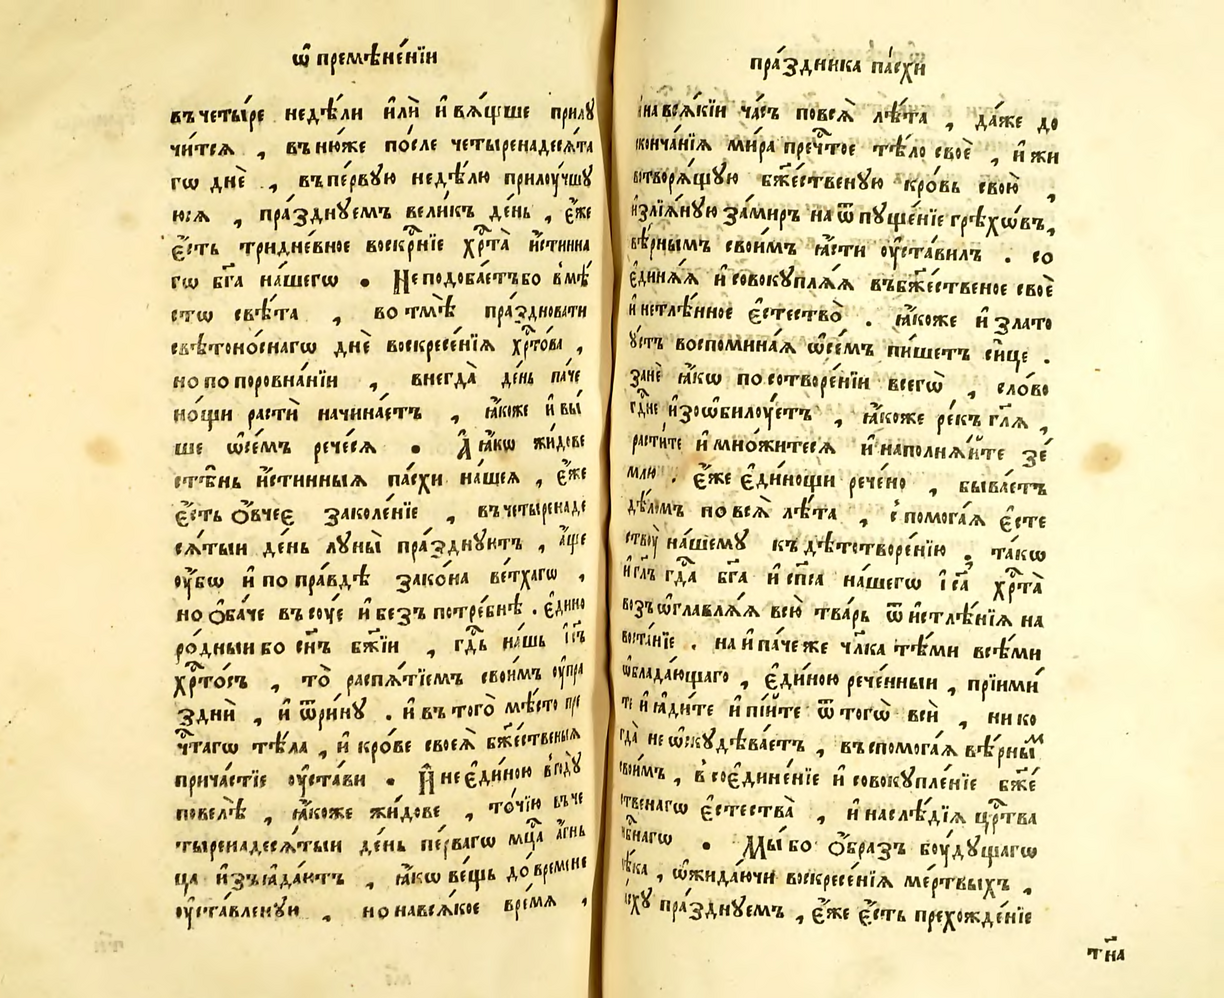 ѡ҆ премѣне́нїи
въ четы́ре недѣ́ли и҆лѝ и҆ вѧ́щъше прилꙋ
чи́тсѧ , въ ню́же по́сле четыренадесѧ́та
гѡ днѐ , въ пе́рвую недѣ́лю прилоу́чшꙋ
юсѧ , пра́зднꙋемъ вели́къ де́нь , є҆́же
є҆́сть тридне́вное воскрⷭ҇нїе хрⷭ҇та̀ и҆́стинна
гѡ бг҃а на́шегѡ . Не подоба́етъ бо в мѣ́
стѡ свѣ́та , во тмѣ̀ пра́здновати
свѣтоно́снагѡ днѐ воскресе́нїѧ хрⷭ҇то́ва ,
но по поровна́нїи , внегда̀ де́нь па́че
но́щи растѝ начина́етъ , ꙗ҆́коже и҆ вы́
ше ѡ҆ се́мъ рече́сѧ . А҆ ꙗ҆́кѡ жи́дове
стѣ́нь и҆́стинныѧ па́схи на́шеѧ , є҆́же
є҆́сть ѻ҆́вчеє заколе́нїе , въ четыренаде
сѧ́тыи де́нь лꙋны̀ пра́зднꙋютъ , а҆́ще
оу҆́бѡ и҆ по пра́вдѣ зако́на ве́тхагѡ ,
но ѻ҆ба́че въ со́ує и҆ безъ потре́бнѣ . є҆дино
ро́дныи бо сн҃ъ бж҃їи , гдⷭ҇ь на́шь і҆с҃ъ
хрⷭ҇то́съ , то̀ распѧ́тїемъ свои́мъ оу҆пра
зднѝ , и҆ ѿри́нꙋ . и҆ въ того̀ мѣ́сто пре
чⷭ҇тагѡ тѣ́ла , и҆ кро́ве своеѧ̀ бж҃е́ственыѧ
прича́стїе оу҆ста́ви . И҆ не є҆ди́ною в го́дꙋ
повелѣ̀ , ꙗ҆́коже жи́дове , то́чїю въ че
тыренадесѧ́тыи де́нь пе́рвагѡ мцⷭ҇а а҆́гнь
ца и҆з̾ꙗ҆да́ютъ , ꙗ҆́кѡ ве́щь до вре́мене
оу҆ста́вленꙋи , но на всѧ́кое вре́мѧ ,
пра́здника па́схи
и҆ на всѧ́кїи ча́съ по всѧ̀ лѣ́та , да́же до
сконча́нїѧ ми́ра пречⷭ҇тое тѣ́ло своѐ , и҆ жи
вотворѧ́щꙋю бж҃е́ственꙋю кро́вь свою̀ ,
и҆злїѧ́нꙋю за ми́ръ на ѿпꙋще́нїе грѣхѡ́въ ,
вѣ́рнымъ свои́мъ ꙗ҆́сти оу҆ста́вилъ . со
є҆динѧ́ѧ и҆ совокꙋплѧ́ѧ въ бж҃е́ственое своѐ
и҆ нетлѣ́нное є҆стество̀ . ꙗ҆́коже и҆ злато
ꙋ́стъ воспомина́ѧ ѡ҆ се́мъ пи́шетъ си́це .
занѐ ꙗ҆́кѡ по сотворе́нїи всегѡ̀ , сло́во
гдⷭ҇не и҆зоѡби́лоуетъ , ꙗ҆́коже ре́къ гл҃ѧ ,
расти́те и҆ мно́житесѧ и҆ наполнѧ́йте зе́
млю . є҆́же є҆ди́нощи рече́но , быва́етъ
дѣ́ломъ по всѧ̀ лѣ́та , спомога́ѧ є҆сте
ствоу̀ на́шемꙋ къ дѣтотворе́нїю , та́кѡ
и҆ гл҃ъ гдⷭ҇а бг҃а и҆ сп҃са на́шегѡ і҆с҃а хрⷭ҇та̀
возъѡглавлѧ́ѧ всю̀ тва́рь ѿ и҆стлѣ́нїѧ на
воста́нїе . наи҆па́че же чл҃ка тѣ́ми всѣ́ми
ѡ҆блада́ющаго , є҆ди́ною рече́нныи , прїими́
те и҆ ꙗ҆ди́те и҆ пі́йте ѿ тогѡ̀ всѝ , нико
гда̀ не ѡ҆скꙋдѣва́етъ , въ спомога́ѧ вѣ́рныⷨ
свои́мъ , в соє҆дине́нїе и҆ совокꙋпле́нїе бж҃е́
ственагѡ є҆стества̀ , и҆ наслѣ́дїѧ црⷭ҇тва
нбⷭ҇нагѡ . Мы́ бо ѻ҆́бразъ боу́дꙋщагѡ
вѣ́ка , ѡ҆жида́ючи воскресе́нїѧ ме́ртвыхъ ,
па́схꙋ пра́зднꙋемъ , є҆́же є҆́сть прехожде́нїе